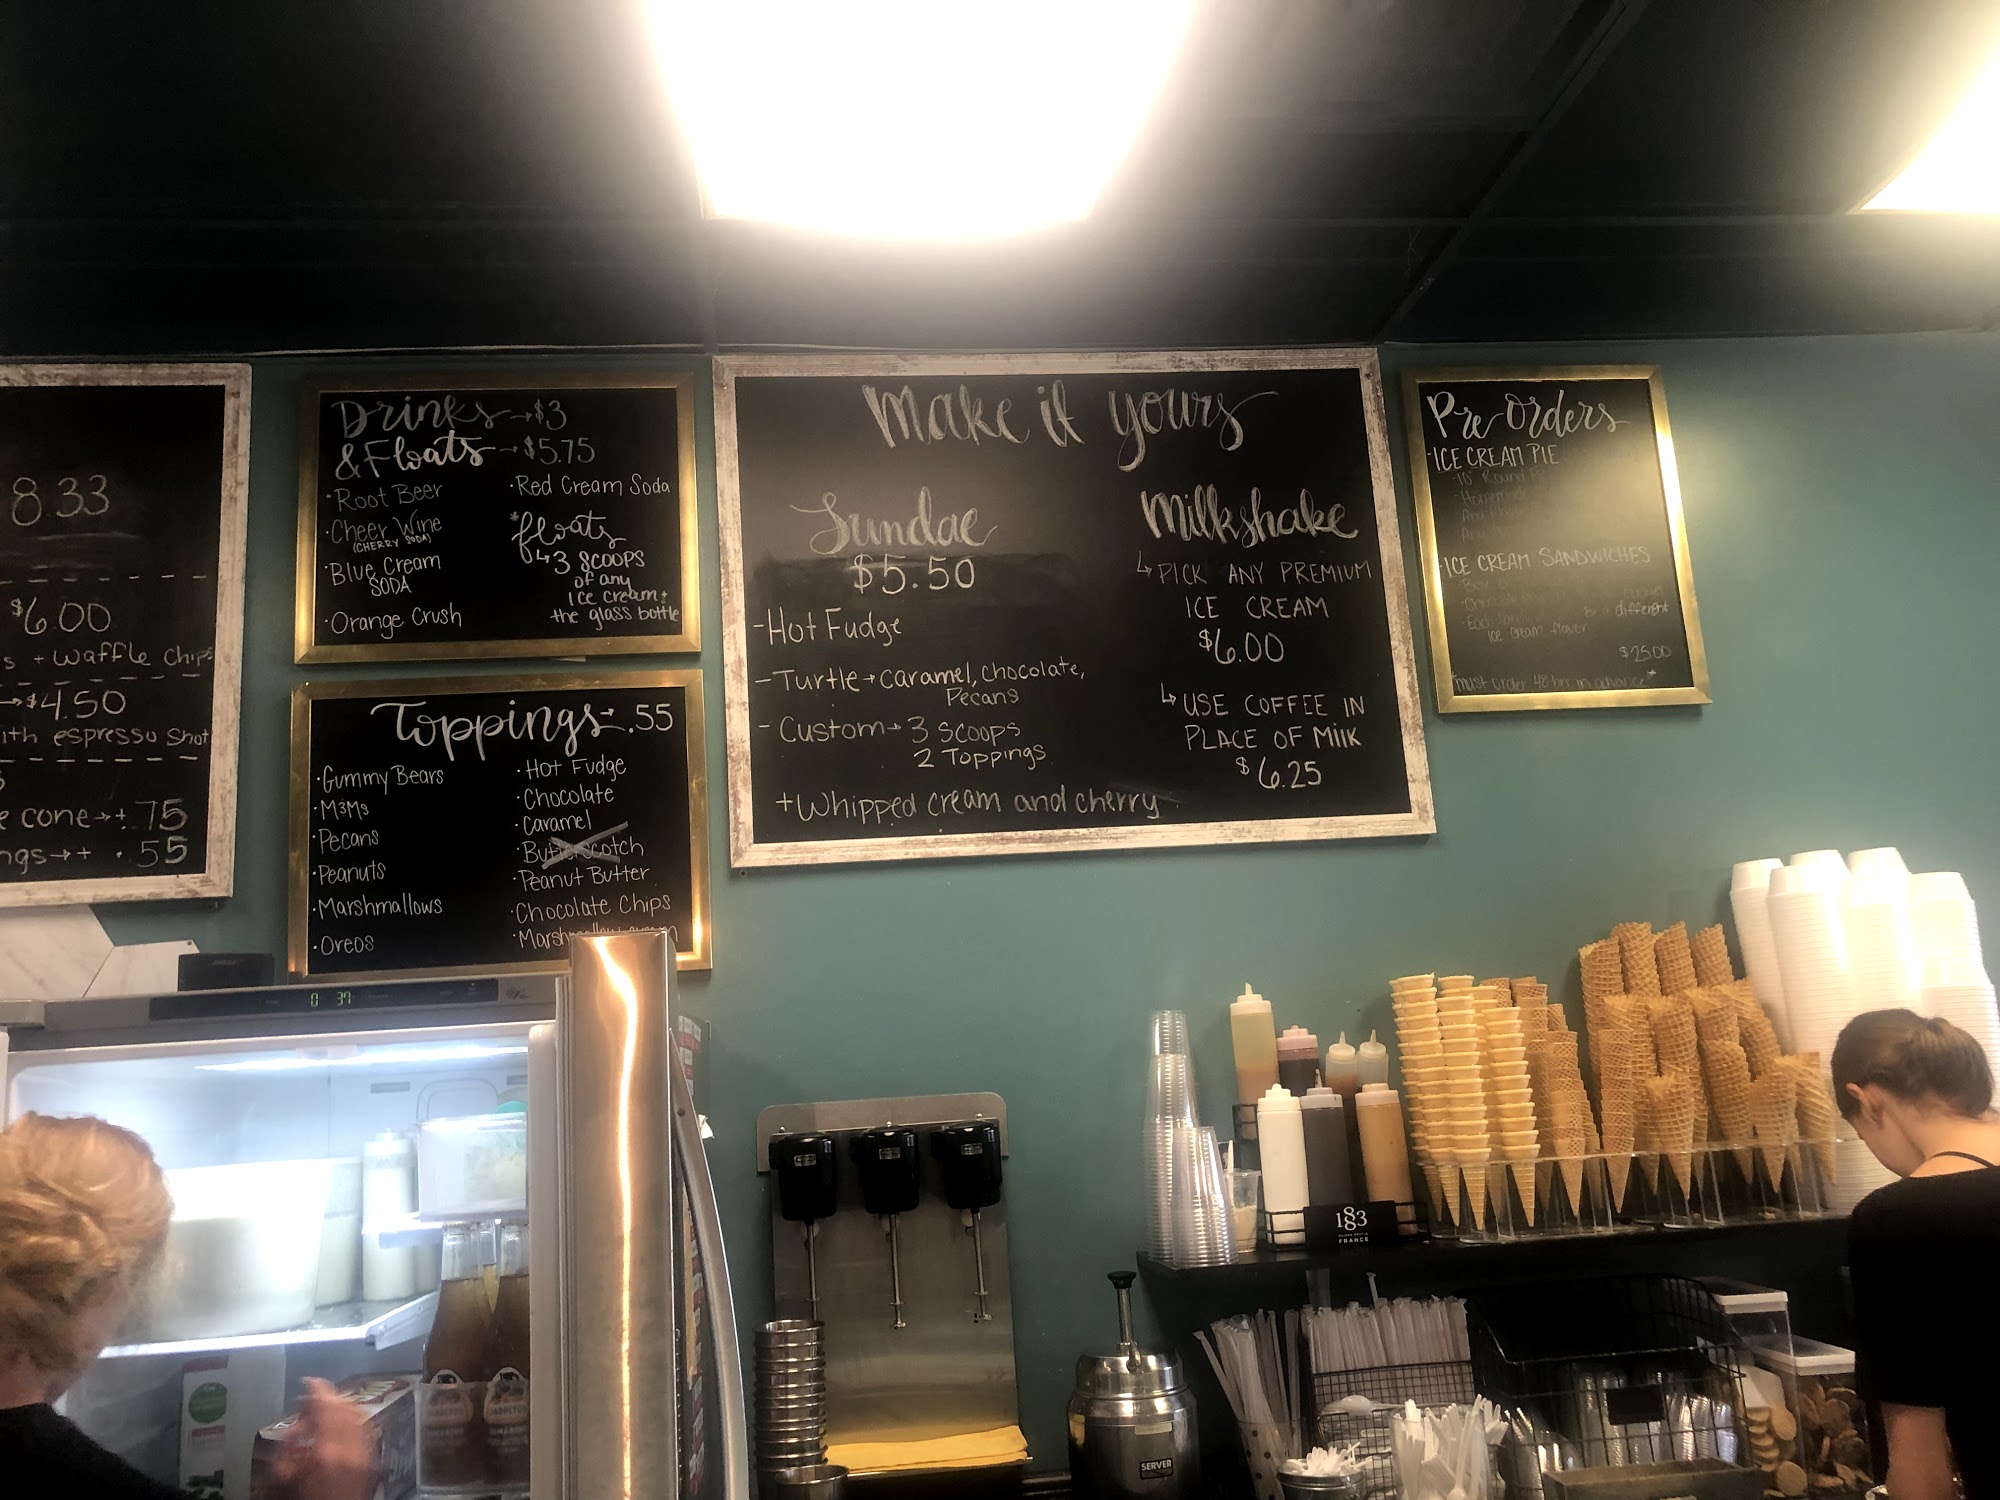 8.33
$6.00
s + waffle chips
→$4.50
ith espresso shot
e cone→+.75
ngs→+ .55
Drinks→$3
& Floats→$5.75
·Root Beer
·Cheer Wine
(CHERRY SODA)
·Blue Cream
SODA
·Orange Crush
·Red Cream Soda
*floats
↳3 scoops
of any
ice cream+
the glass bottle
Toppings→.55
·Gummy Bears
·M&Ms
·Pecans
·Peanuts
·Marshmallows
·Oreos
·Hot Fudge
·Chocolate
·Caramel
·Butterscotch
·Peanut Butter
·Chocolate Chips
·Marshmallow cream
make it yours
Sundae
$5.50
-Hot Fudge
-Turtle→caramel, chocolate,
Pecans
-Custom→3 scoops
2 Toppings
+Whipped cream and cherry
Milkshake
↳PICK ANY PREMIUM
ICE CREAM
$6.00
↳USE COFFEE IN
PLACE OF MilK
$6.25
Pre-Orders
·ICE CREAM PIE
10" Round
·ICE CREAM SANDWICHES
different
ice cream flavor
$25.00
*must order 48 hrs in advance*
0 37
1883
FRANCE
SERVER